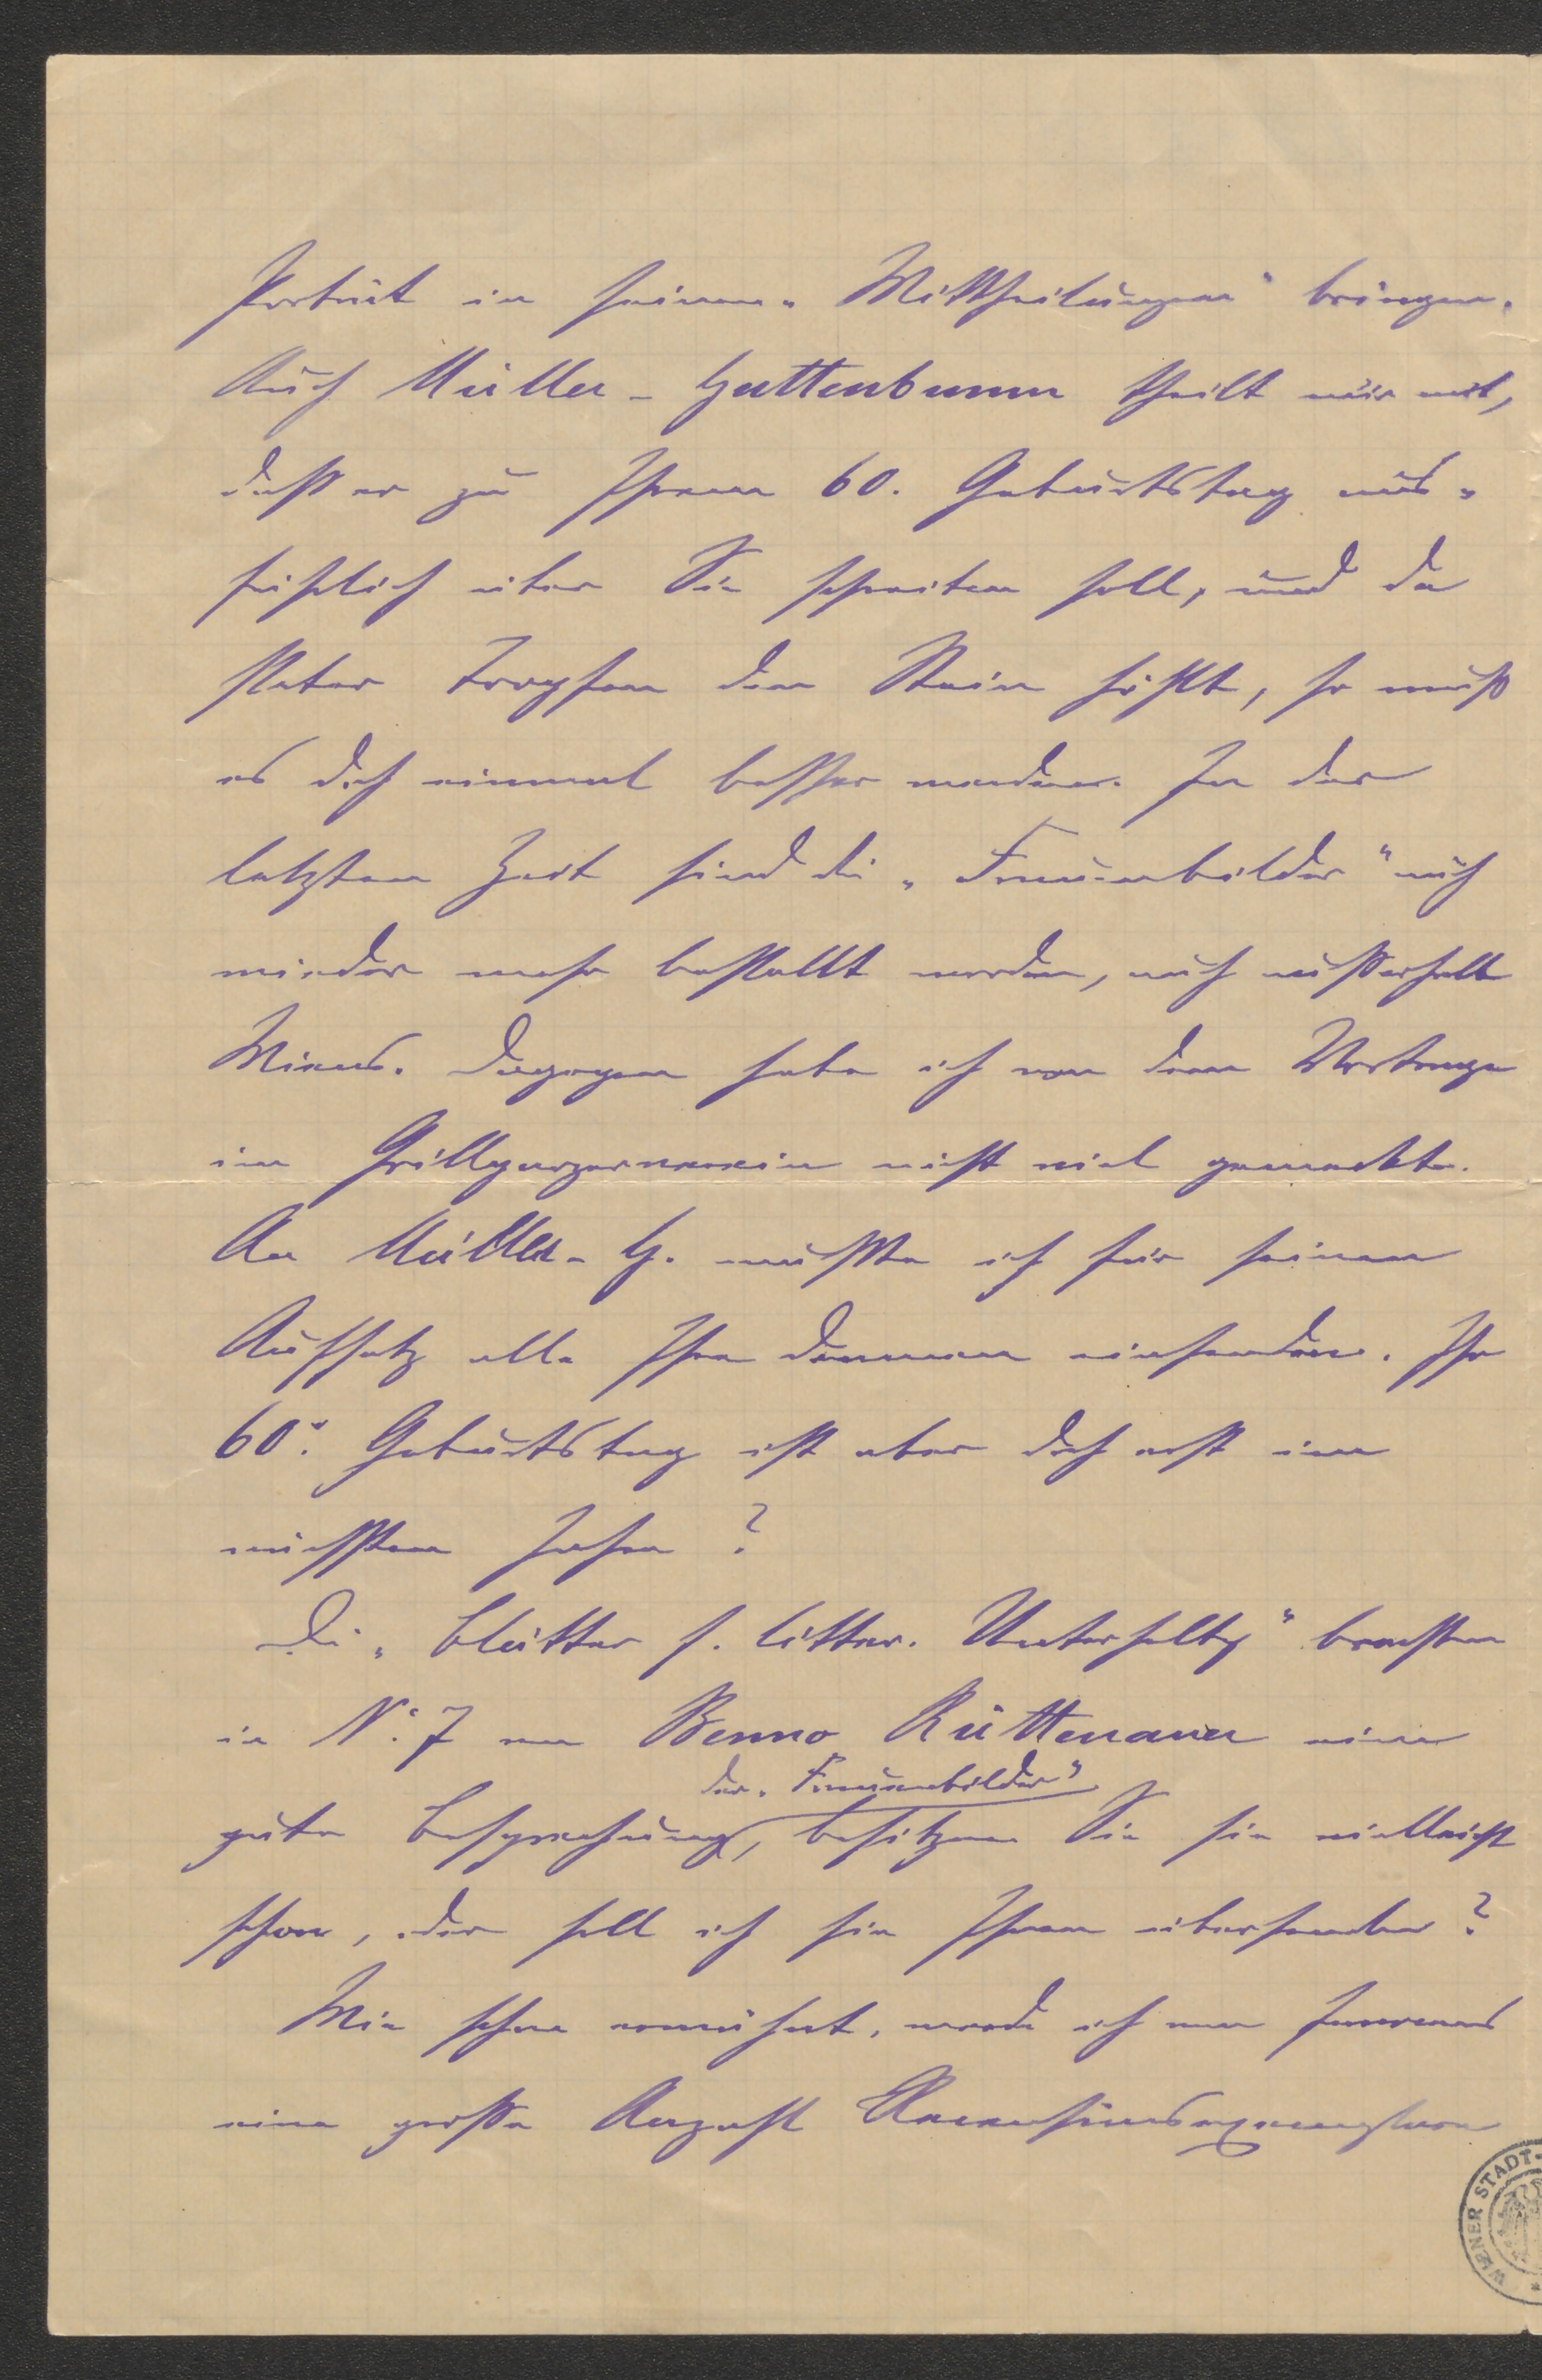 Porträt in seinen „Mittheilungen“ bringen.
Auch Müller-Guttenbrunn theilt mir mit,
daß er zu Ihrem 60. Geburtstag aus-
führlich über Sie schreiben soll, und da
steter Tropfen den Stein höhlt, so muß
es doch einmal besser werden. In der
letzten Zeit sind die „Frauenbilder“ auch
wieder mehr bestellt worden, auch außerhalb
Wiens. Dagegen habe ich von dem Vortrage
im Grillparzerverein nicht viel gemerkt.
An Müller-G. mußte ich für seinen
Aufsatz alle Ihre Dramen einsenden. Ihr
60. Geburtstag ist aber doch erst im
nächsten Jahre?
Die „Blätter f. litter. Unterhaltg“ brachten
in No. 7 von Benno Rüttenauer eine
der „Frauenbilder“
gute Besprechung, besitzen Sie sie vielleicht
schon, oder soll ich sie Ihnen übersenden?
Wie schon erwähnt, werde ich von Ferneres
eine große Anzahl Recensionsexemplare
WIENER STADT-